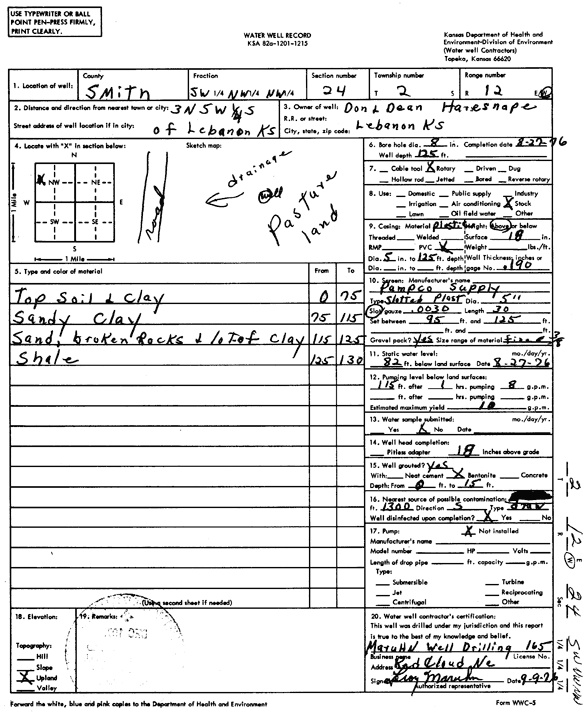 USE TYPEWRITER OR BALL
POINT PEN-PRESS FIRMLY,
PRINT CLEARLY.
WATER WELL RECORD
KSA 82a-1201-1215
Kansas Department of Health and
Environment-Division of Environment
(Water well Contractors)
Topeka, Kansas 66620
1. Location of well: County Smith Fraction SW 1/4 NW 1/4 NW 1/4 Section number 24 Township number T 2 S Range number R 12 E/W
2. Distance and direction from nearest town or city: 3N 5W
Street address of well location if in city: of Lebanon Ks
3. Owner of well: Don & Dean Haresnape
R.R. or street:
City, state, zip code: Lebanon Ks
4. Locate with "X" in section below:
Sketch map:
N
NW NE
W E
SW SE
S
1 Mile
1 Mile
X
road
drainage
well
Pasture
land
5. Type and color of material From To
Top Soil & Clay 0 75
Sandy Clay 75 115
Sand, broken Rocks & lots of Clay 115 125
Shale 125 130
(Use a second sheet if needed)
6. Bore hole dia. 8 in. Completion date 8-27-76
Well depth 125 ft.
7. Cable tool X Rotary Driven Dug
Hollow rod Jetted Bored Reverse rotary
8. Use: Domestic Public supply Industry
Irrigation Air conditioning X Stock
Lawn Oil field water Other
9. Casing: Material plastic Height: Above or below
Threaded Welded Surface 18 in.
RMP PVC X Weight lbs./ft.
Dia. 5 in. to 125 ft. depth Wall Thickness: inches or
Dia. in. to ft. depth gage No. .190
10. Screen: Manufacturer's name
Pampco Supply
Type Slotted Plast Dia. 5"
Slot/gauze .0030 Length 30
Set between 95 ft. and 125 ft.
ft. and ft.
Gravel pack? Yes Size range of material
11. Static water level: mo./day/yr.
82 ft. below land surface Date 8-27-76
12. Pumping level below land surfaces:
115 ft. after 1 hrs. pumping 8 g.p.m.
ft. after hrs. pumping g.p.m.
Estimated maximum yield 10 g.p.m.
13. Water sample submitted: mo./day/yr.
Yes X No Date
14. Well head completion:
Pitless adapter 18 Inches above grade
15. Well grouted? Yes
With: Neat cement X Bentonite Concrete
Depth: From 0 ft. to 15 ft.
16. Nearest source of possible contamination:
ft. 1300 Direction S Type draw
Well disinfected upon completion? X Yes No
17. Pump: X Not installed
Manufacturer's name
Model number HP Volts
Length of drop pipe ft. capacity g.p.m.
Type:
Submersible Turbine
Jet Reciprocating
Centrifugal Other
18. Elevation:
Topography:
Hill
Slope
X Upland
Valley
19. Remarks:
20. Water well contractor's certification:
This well was drilled under my jurisdiction and this report
is true to the best of my knowledge and belief.
Maruhn Well Drilling 165
Business name License No.
Address Red Cloud, Ne
Signed Maruhn Date 9-9-76
Authorized representative
Forward the white, blue and pink copies to the Department of Health and Environment
Form WWC-5
T 2
R 12 E W
Sec 24
1/4 1/4 1/4